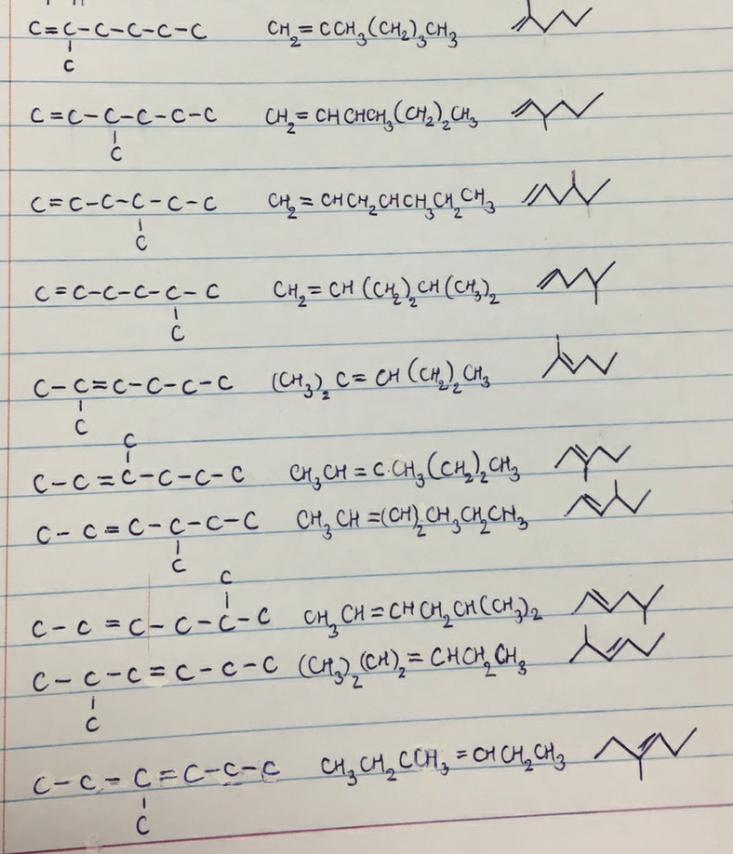 C=C-C-C-C-C CH₂=CCH₃(CH₂)₃CH₃
C
C=C-C-C-C-C CH₂=CHCHCH₃(CH₂)₂CH₃
C
C=C-C-C-C-C CH₂=CHCH₂CHCH₃CH₂CH₃
C
C=C-C-C-C-C CH₂=CH(CH₂)₂CH(CH₃)₂
C
C-C=C-C-C-C (CH₃)₂C=CH(CH₂)₂CH₃
C
C
C-C=C-C-C-C CH₃CH=C·CH₃(CH₂)₂CH₃
C-C=C-C-C-C CH₃CH=(CH)₂CH₃CH₂CH₃
C
C
C-C=C-C-C-C CH₃CH=CHCH₂CH(CH₃)₂
C-C-C=C-C-C (CH₃)₂(CH)₂=CHCH₂CH₃
C
C-C-C=C-C-C CH₃CH₂CCH₃=CHCH₂CH₃
C